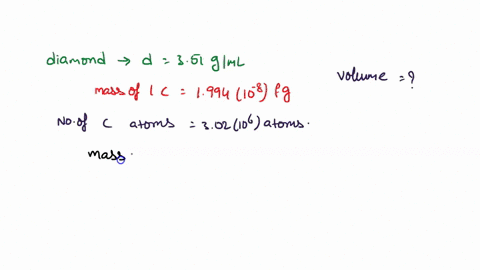 diamond → d = 3.51 g/mL
volume = ?
mass of 1 C = 1.994 (10⁻⁸) pg
No. of C atoms = 3.02 (10⁶) atoms.
mass